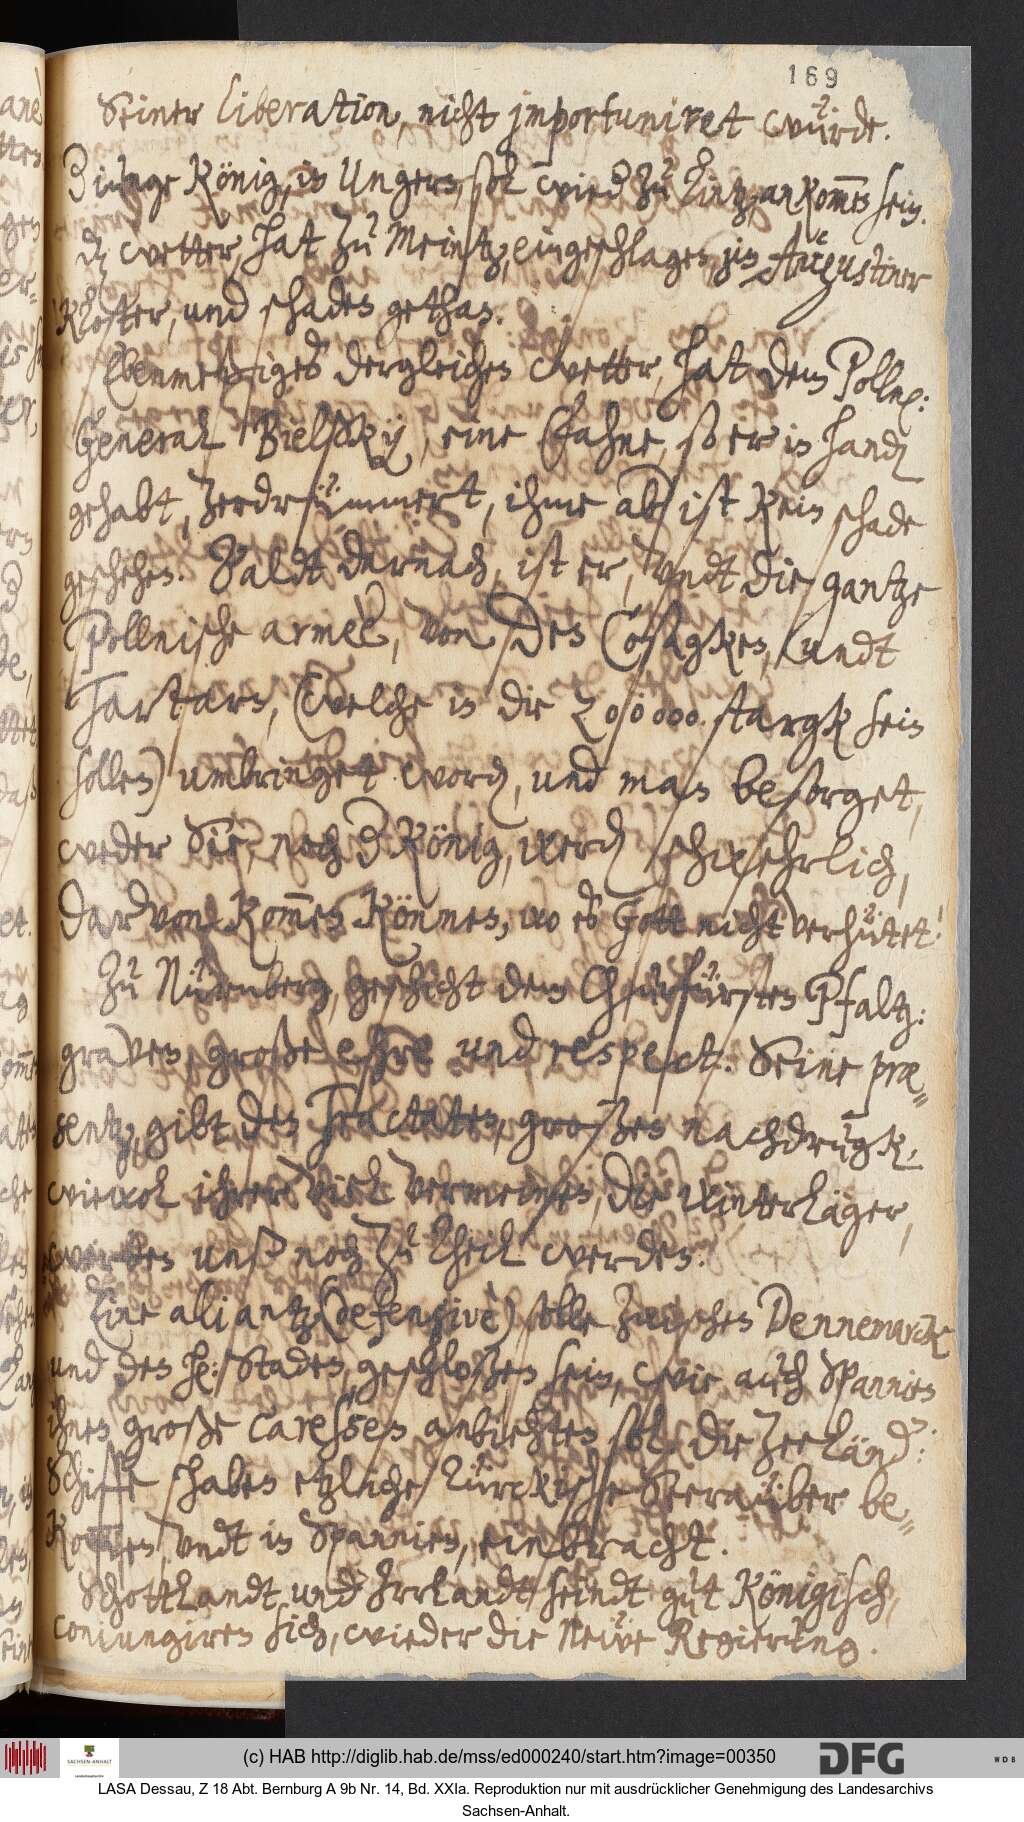 169
Seiner liberation, nicht importuniret würde.
Junge König, in Ungern, sol wied zu Lintz, ankom̄en sein.
dz wetter, hat zu Meintz, eingeschlagen, jn Augustiner
Kloster, und schaden gethan.
Ebenmeßiges dergleichen wetter, hat dem Polln:
General Bielsky, eine Fahne, so er in hand
gehabt, zerdrümmert, ihme ab ist kein schade
geschehen. Baldt darnach, ist er, undt die gantze
Pollnische armèe, von den Cosagken, undt
Tartarn, (welche in die 200000 stargk sein
sollen) umbringet word, und man besorget,
weder Sie, noch d König, werd schwehrlich,
darvon kom̄en können, wo es Gott nicht verhütet!
Zu Nürenberg, geschicht dem Churfürsten Pfaltz:
graven, große ehre und respect. Seine præ=
sentz, gibt den Tractaten, großen nachdrugk,
wiewol ihrer viel vermeinen, die winterläger,
werden unß noch zu theil werden.
Eine alliantz (defensive) solle zwischen Dennemarck
und den He: Staden, geschloßen sein, wie auch Spannien
ihnen große caressen anbiehten sol, die Zeeländ:
Schiffe haben etzliche Türckische Seerauber be=
kommen, undt in Spannien, einbracht.
Schottlandt und Irrlandt seindt gut Königisch,
coniungiren sich, wieder die Neue Regierung.
SACHSEN-ANHALT
(c) HAB http://diglib.hab.de/mss/ed000240/start.htm?image=00350
DFG
WDB
LASA Dessau, Z 18 Abt. Bernburg A 9b Nr. 14, Bd. XXIa. Reproduktion nur mit ausdrücklicher Genehmigung des Landesarchivs
Sachsen-Anhalt.